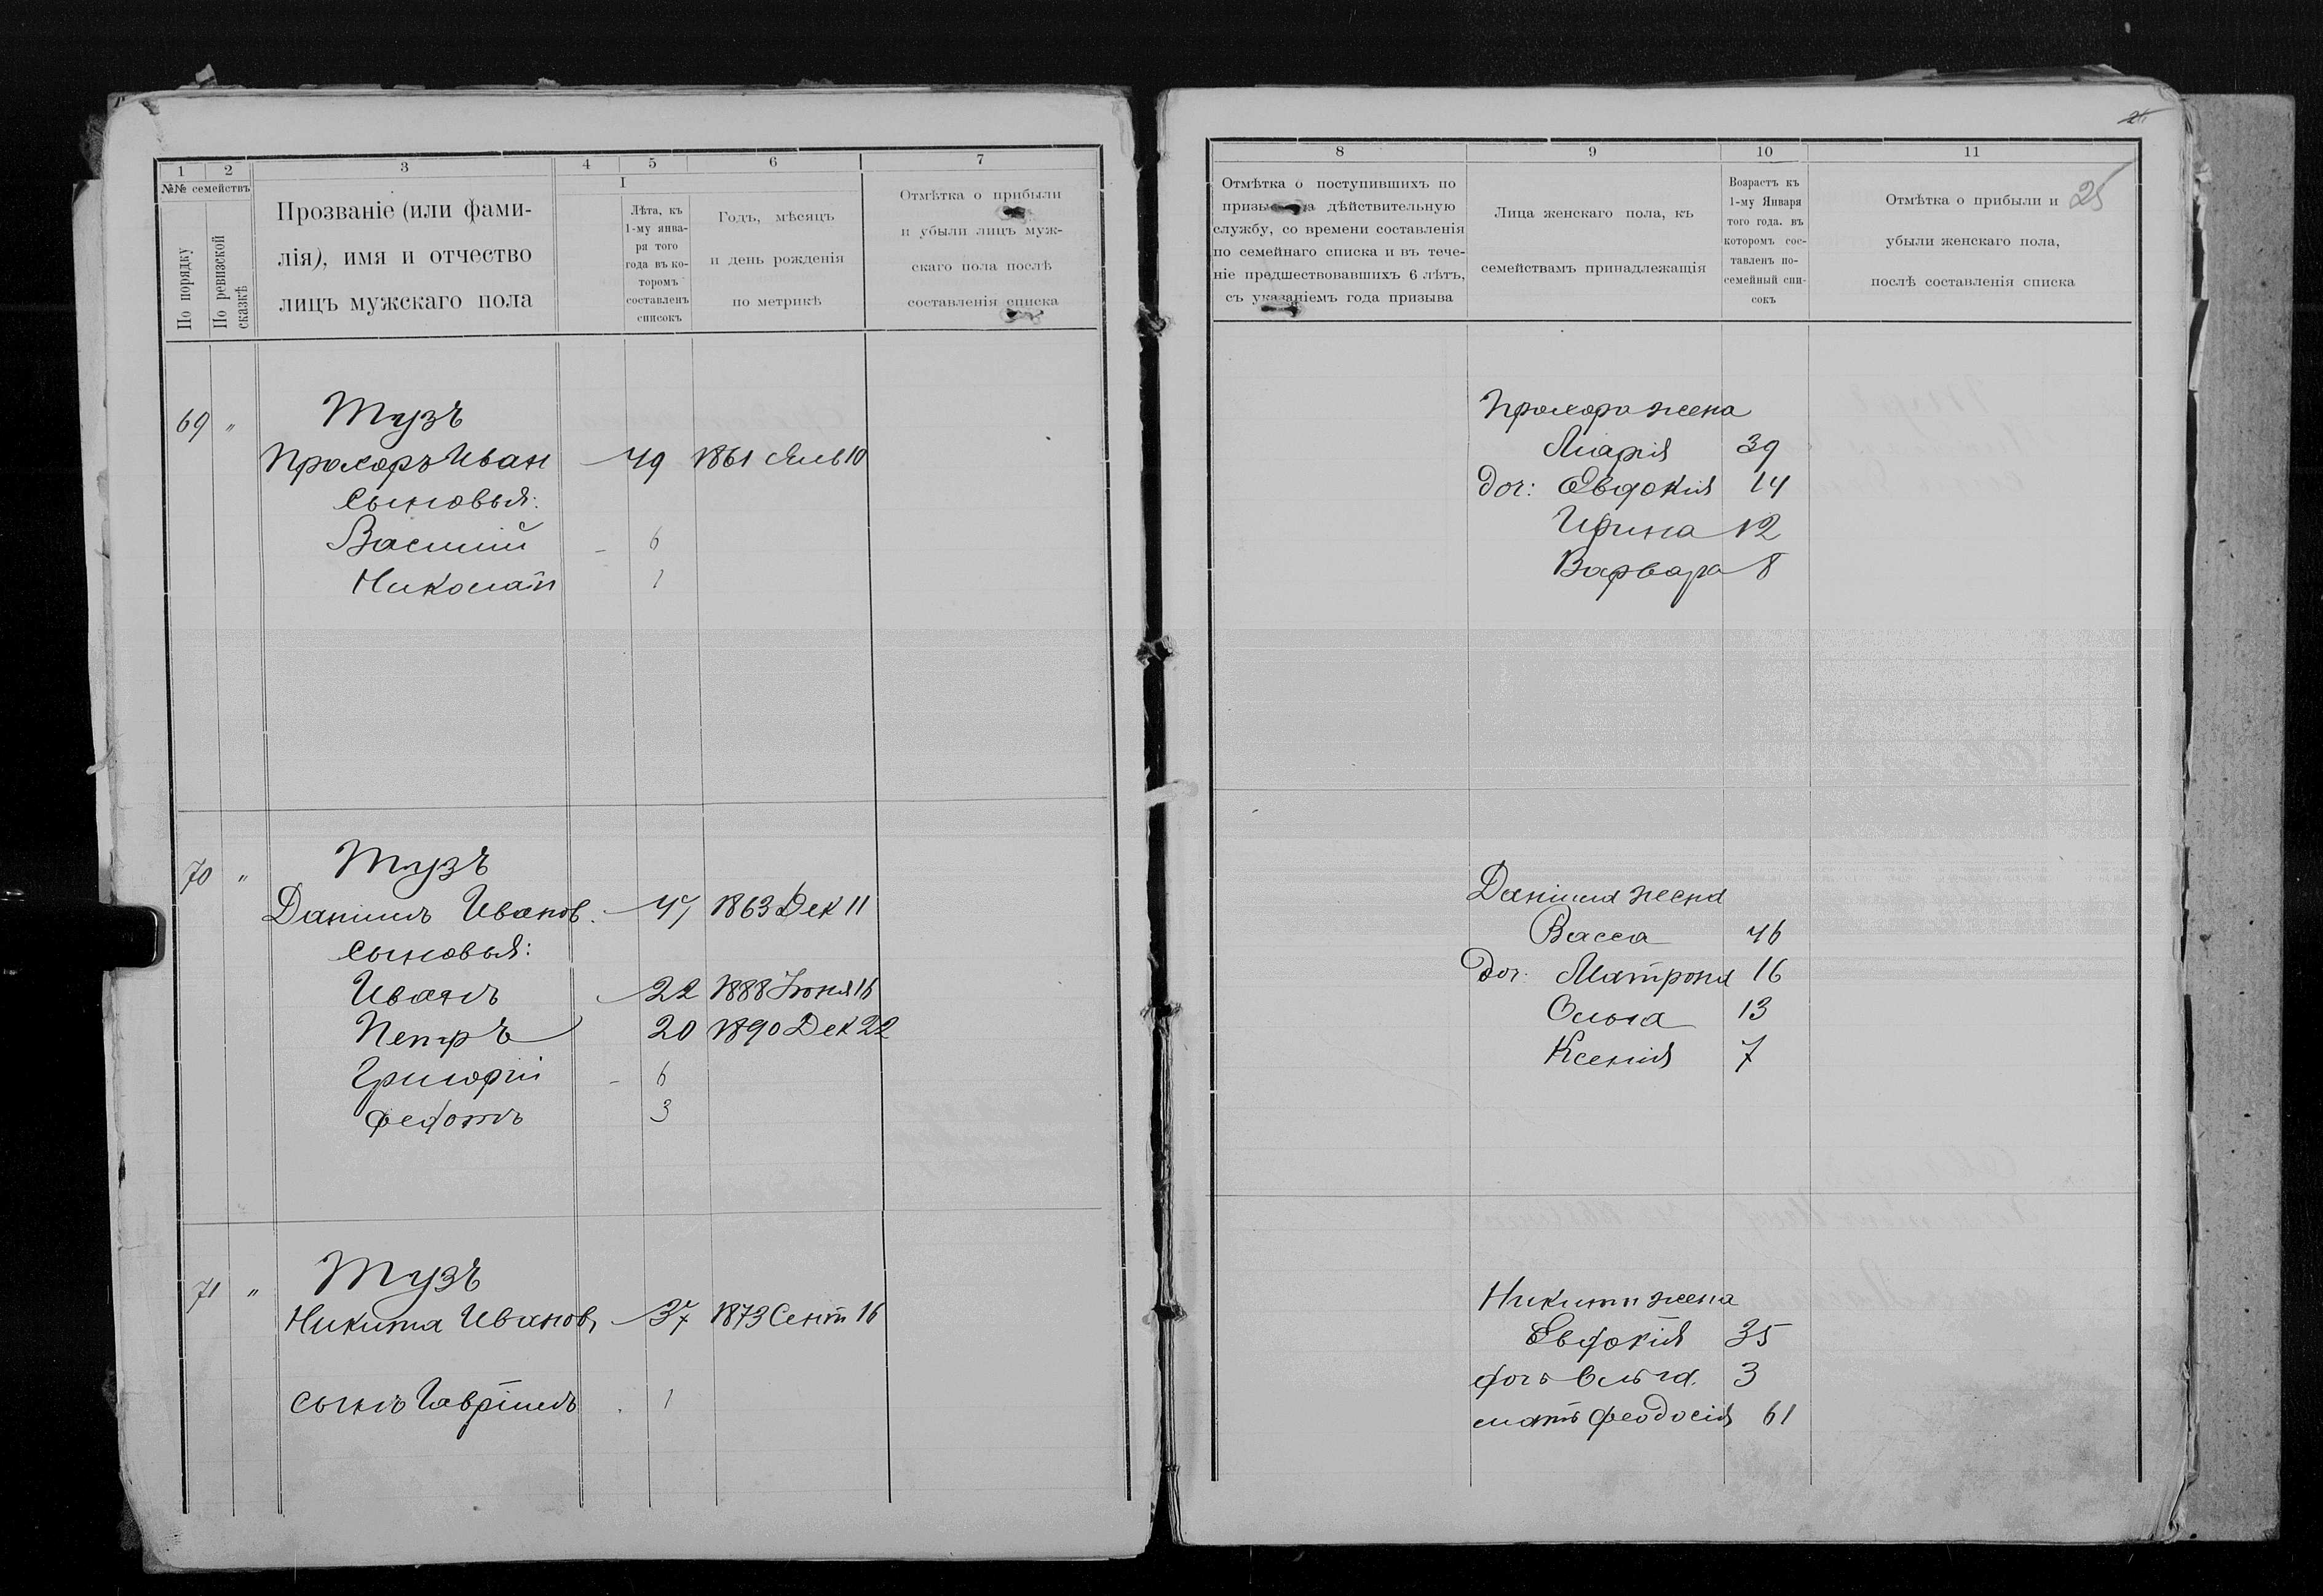 1 2 3 4 5 6 7
№№ семействъ
По порядку
По ревизской сказкѣ
Прозваніе (или фами-
лія), имя и отчество
лицъ мужскаго пола
I
Лѣта, къ
1-му янва-
ря того
года въ ко-
торомъ
составленъ
списокъ
Годъ, мѣсяцъ
и день рожденія
по метрикѣ
Отмѣтка о прибыли
и убыли лицъ муж-
скаго пола послѣ
составленія списка
69 " Тузъ
Прохоръ Иван 49 1861 10
сыновья:
Василий - 6
Николай 1
70 " Тузъ
Даніилъ Иванов. 47 1863 Дек 11
сыновья:
Иванъ 22 1888 Іюня 16
Петръ 20 1890 Дек 22
Григорій - 6
Федотъ 3
71 " Тузъ
Никита Иванов, 37 1873 Сент 16
сынъ Гавріилъ 1
25
8 9 10 11
Отмѣтка о поступившихъ по
призыву на дѣйствительную
службу, со времени составленія
по семейнаго списка и въ тече-
ніе предшествовавшихъ 6 лѣтъ,
съ указаніемъ года призыва
Лица женскаго пола, къ
семействамъ принадлежащія
Возрастъ къ
1-му Января
того года. въ
которомъ сос-
тавленъ по-
семейный спи-
сокъ
Отмѣтка о прибыли и
убыли женскаго пола,
послѣ составленія списка
Прохора жена
Марія 39
доч: Евдокия 14
Ирина 12
Варвара 8
Даніила жена
Васса 46
доч: Матрона 16
Ольга 13
Ксенія 7
Никиты жена
Евдокія 35
дочь Ольга. 3
мать Феодосія 61